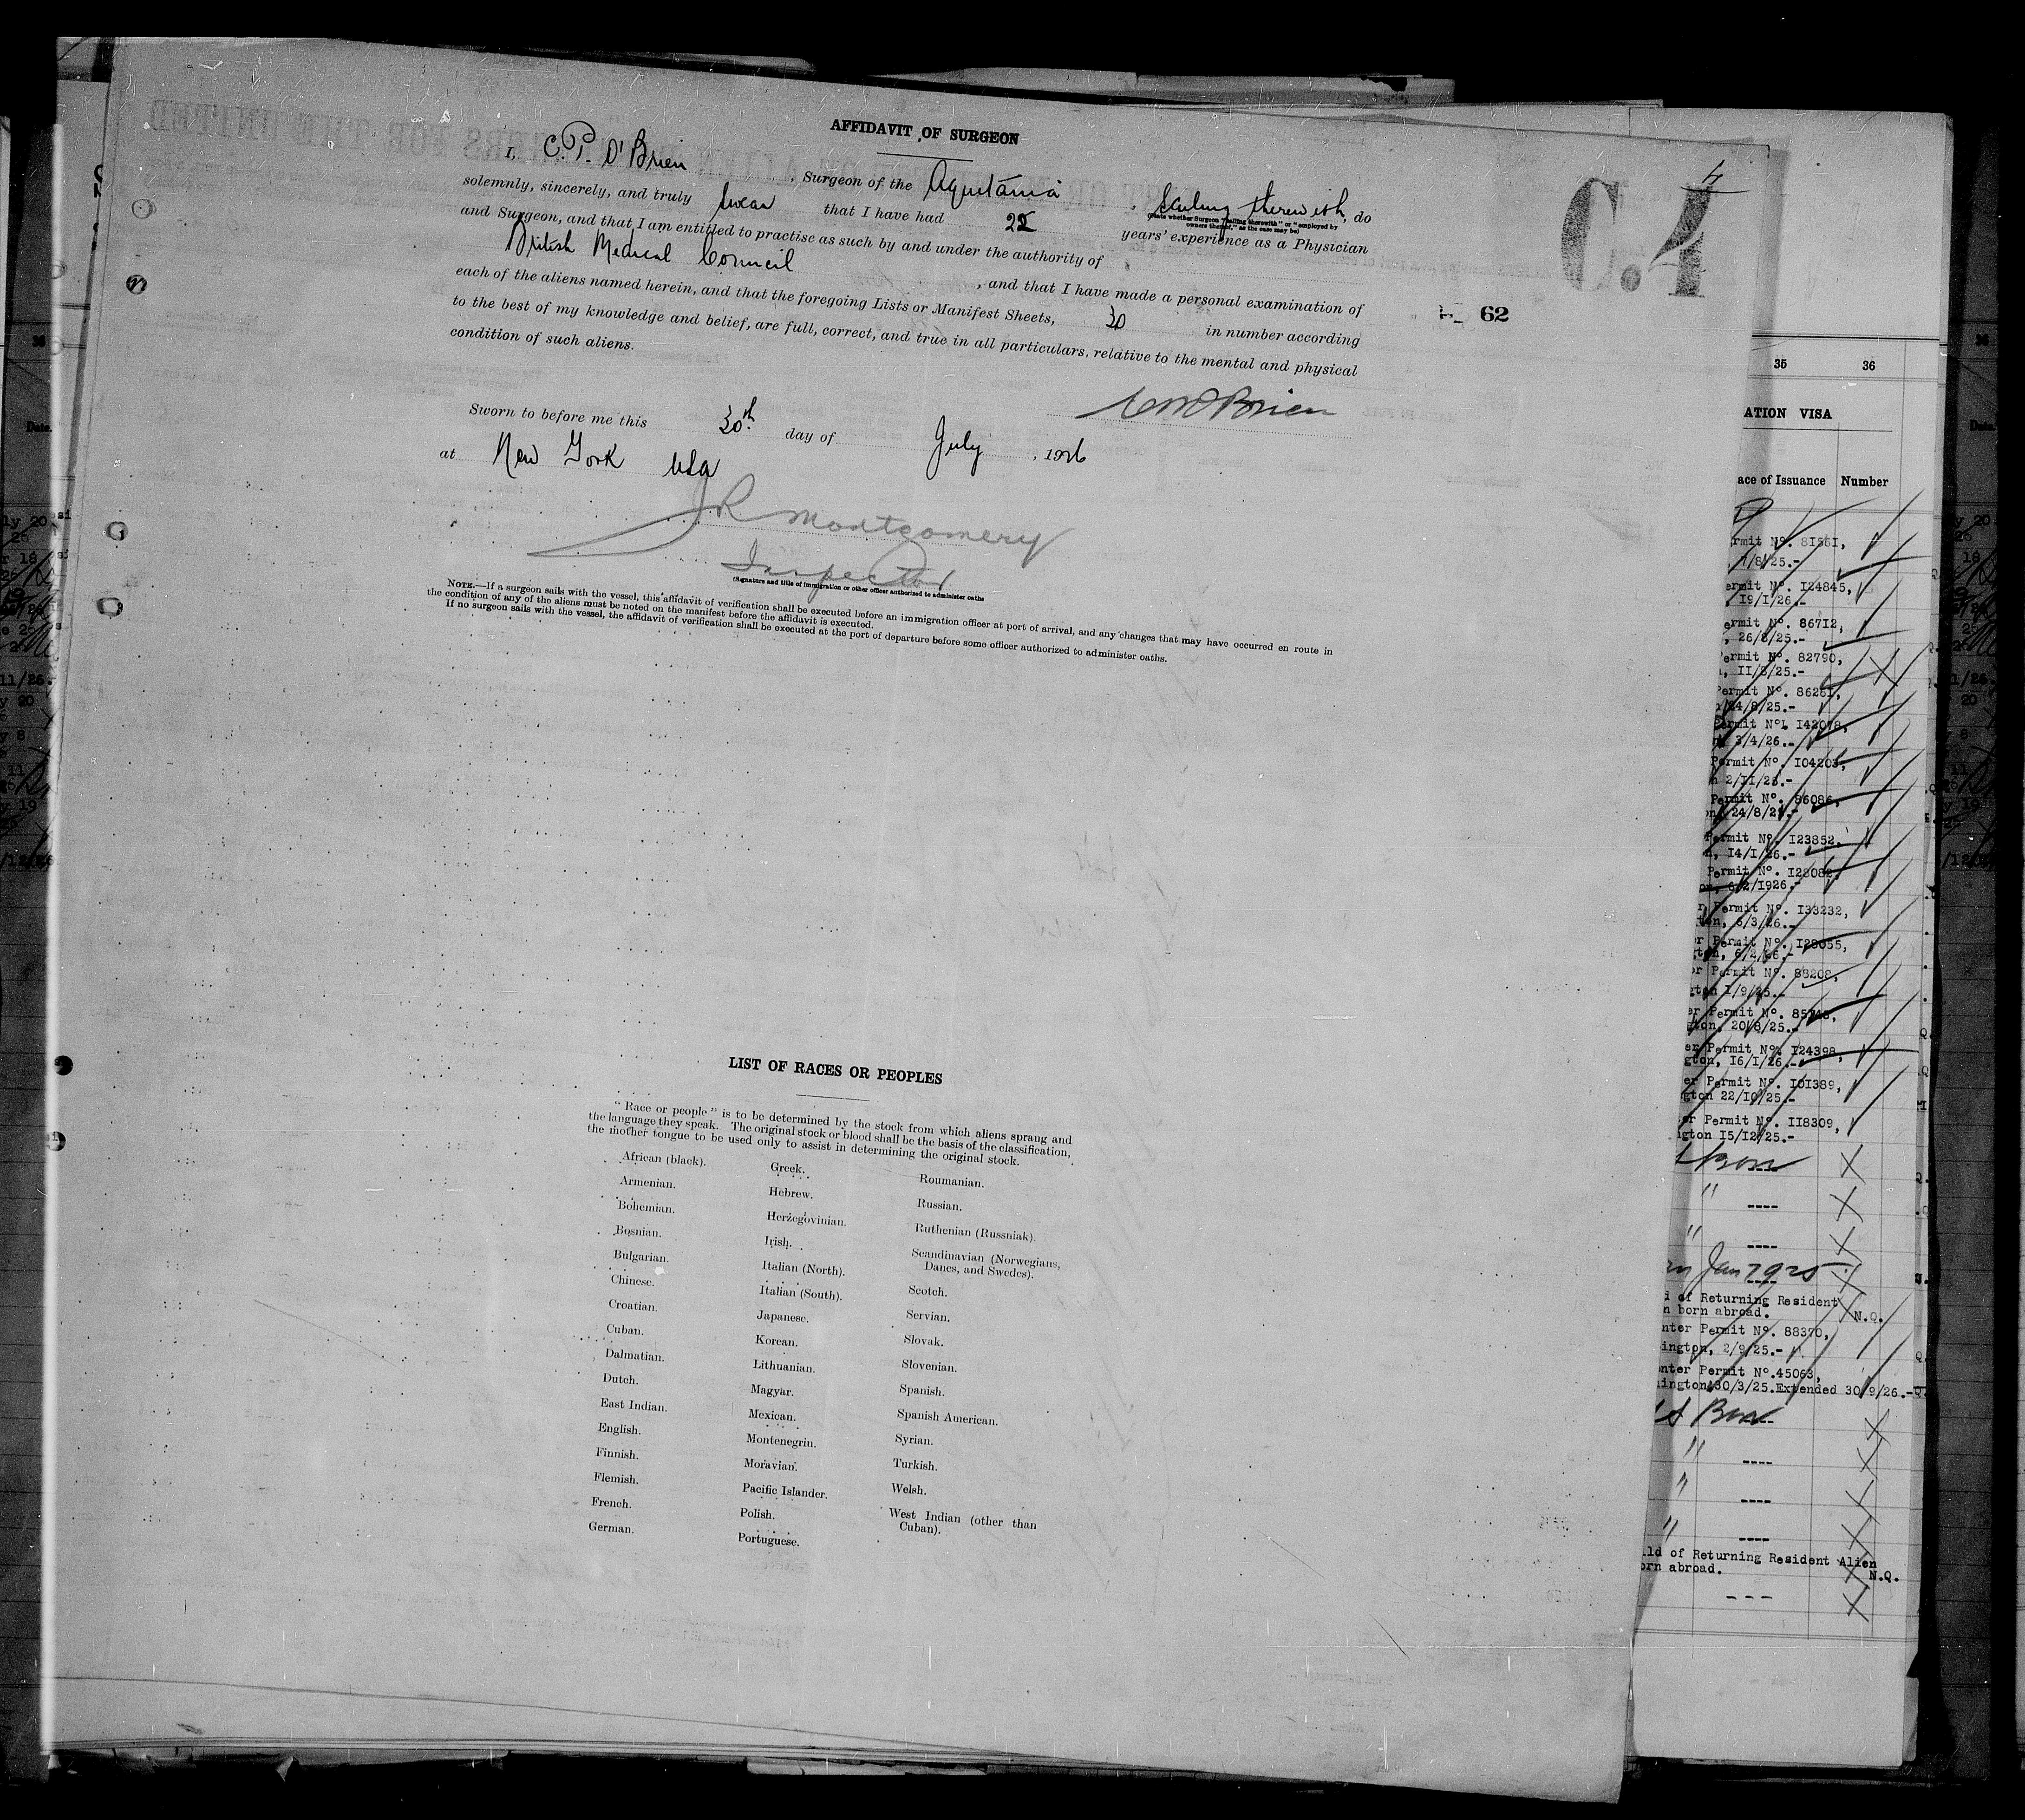 AFFIDAVIT OF SURGEON
4
C.4
I, C.P. O'Brien , Surgeon of the Aquitania , Sailing therewith, do
(State whether Surgeon "sailing therewith" or "employed by
owners thereof," as the case may be)
solemnly, sincerely, and truly swear that I have had 22 years' experience as a Physician
and Surgeon, and that I am entitled to practise as such by and under the authority of
British Medical Council , and that I have made a personal examination of
each of the aliens named herein, and that the foregoing Lists or Manifest Sheets, 30 in number according
to the best of my knowledge and belief, are full, correct, and true in all particulars, relative to the mental and physical
condition of such aliens.
62
O'Brien
Sworn to before me this 30th day of July , 1926
at New York USA
JR Montgomery
Inspector
(Signature and title of immigration or other officer authorized to administer oaths
NOTE.—If a surgeon sails with the vessel, this affidavit of verification shall be executed before an immigration officer at port of arrival, and any changes that may have occurred en route in
the condition of any of the aliens must be noted on the manifest before the affidavit is executed.
If no surgeon sails with the vessel, the affidavit of verification shall be executed at the port of departure before some officer authorized to administer oaths.
LIST OF RACES OR PEOPLES
"Race or people" is to be determined by the stock from which aliens sprang and
the language they speak. The original stock or blood shall be the basis of the classification,
the mother tongue to be used only to assist in determining the original stock.
African (black).
Armenian.
Bohemian.
Bosnian.
Bulgarian.
Chinese.
Croatian.
Cuban.
Dalmatian.
Dutch.
East Indian.
English.
Finnish.
Flemish.
French.
German.
Greek.
Hebrew.
Herzegovinian.
Irish.
Italian (North).
Italian (South).
Japanese.
Korean.
Lithuanian.
Magyar.
Mexican.
Montenegrin.
Moravian.
Pacific Islander.
Polish.
Portuguese.
Roumanian.
Russian.
Ruthenian (Russniak).
Scandinavian (Norwegians,
Danes, and Swedes).
Scotch.
Servian.
Slovak.
Slovenian.
Spanish.
Spanish American.
Syrian.
Turkish.
Welsh.
West Indian (other than
Cuban).
35 36
ATION VISA
ace of Issuance Number
rmit Nº. 81551,
7/8/25.-
ermit Nº. I24845,
, I9/I/26.-
ermit Nº. 867I2,
, 26/8/25.-
ermit Nº. 82790,
, II/8/25.-
Permit Nº. 86261,
24/8/25.-
Permit Nº. I42078,
3/4/26.-
Permit Nº. I04203,
n 2/II/25.-
Permit Nº. 86086,
on, 24/8/25.-
Permit Nº. I23852,
n, I4/I/26.-
Permit Nº. I28082,
on, 6/2/1926.-
r Permit Nº. I33232,
ton, 6/3/26.-
er Permit Nº. I28055,
gton, 6/2/26.-
er Permit Nº. 88208,
gton 1/9/25.-
er Permit Nº. 85748,
gton, 20/8/25.-
er Permit Nº. I24398,
gton, I6/I/26.-
er Permit Nº. I0I389,
gton 22/I0/25.-
er Permit Nº. II8309,
ngton I5/I2/25.-
Born
"
----
"
----
Jan 7 1925
----
d of Returning Resident
n born abroad. N.Q.
nter Permit Nº. 88370,
ington, 2/9/25.-
nter Permit Nº.45063,
hington 30/3/25.Extended 30/9/26.-
Born
"
----
"
----
"
----
ld of Returning Resident Alien
orn abroad. N.Q.
---